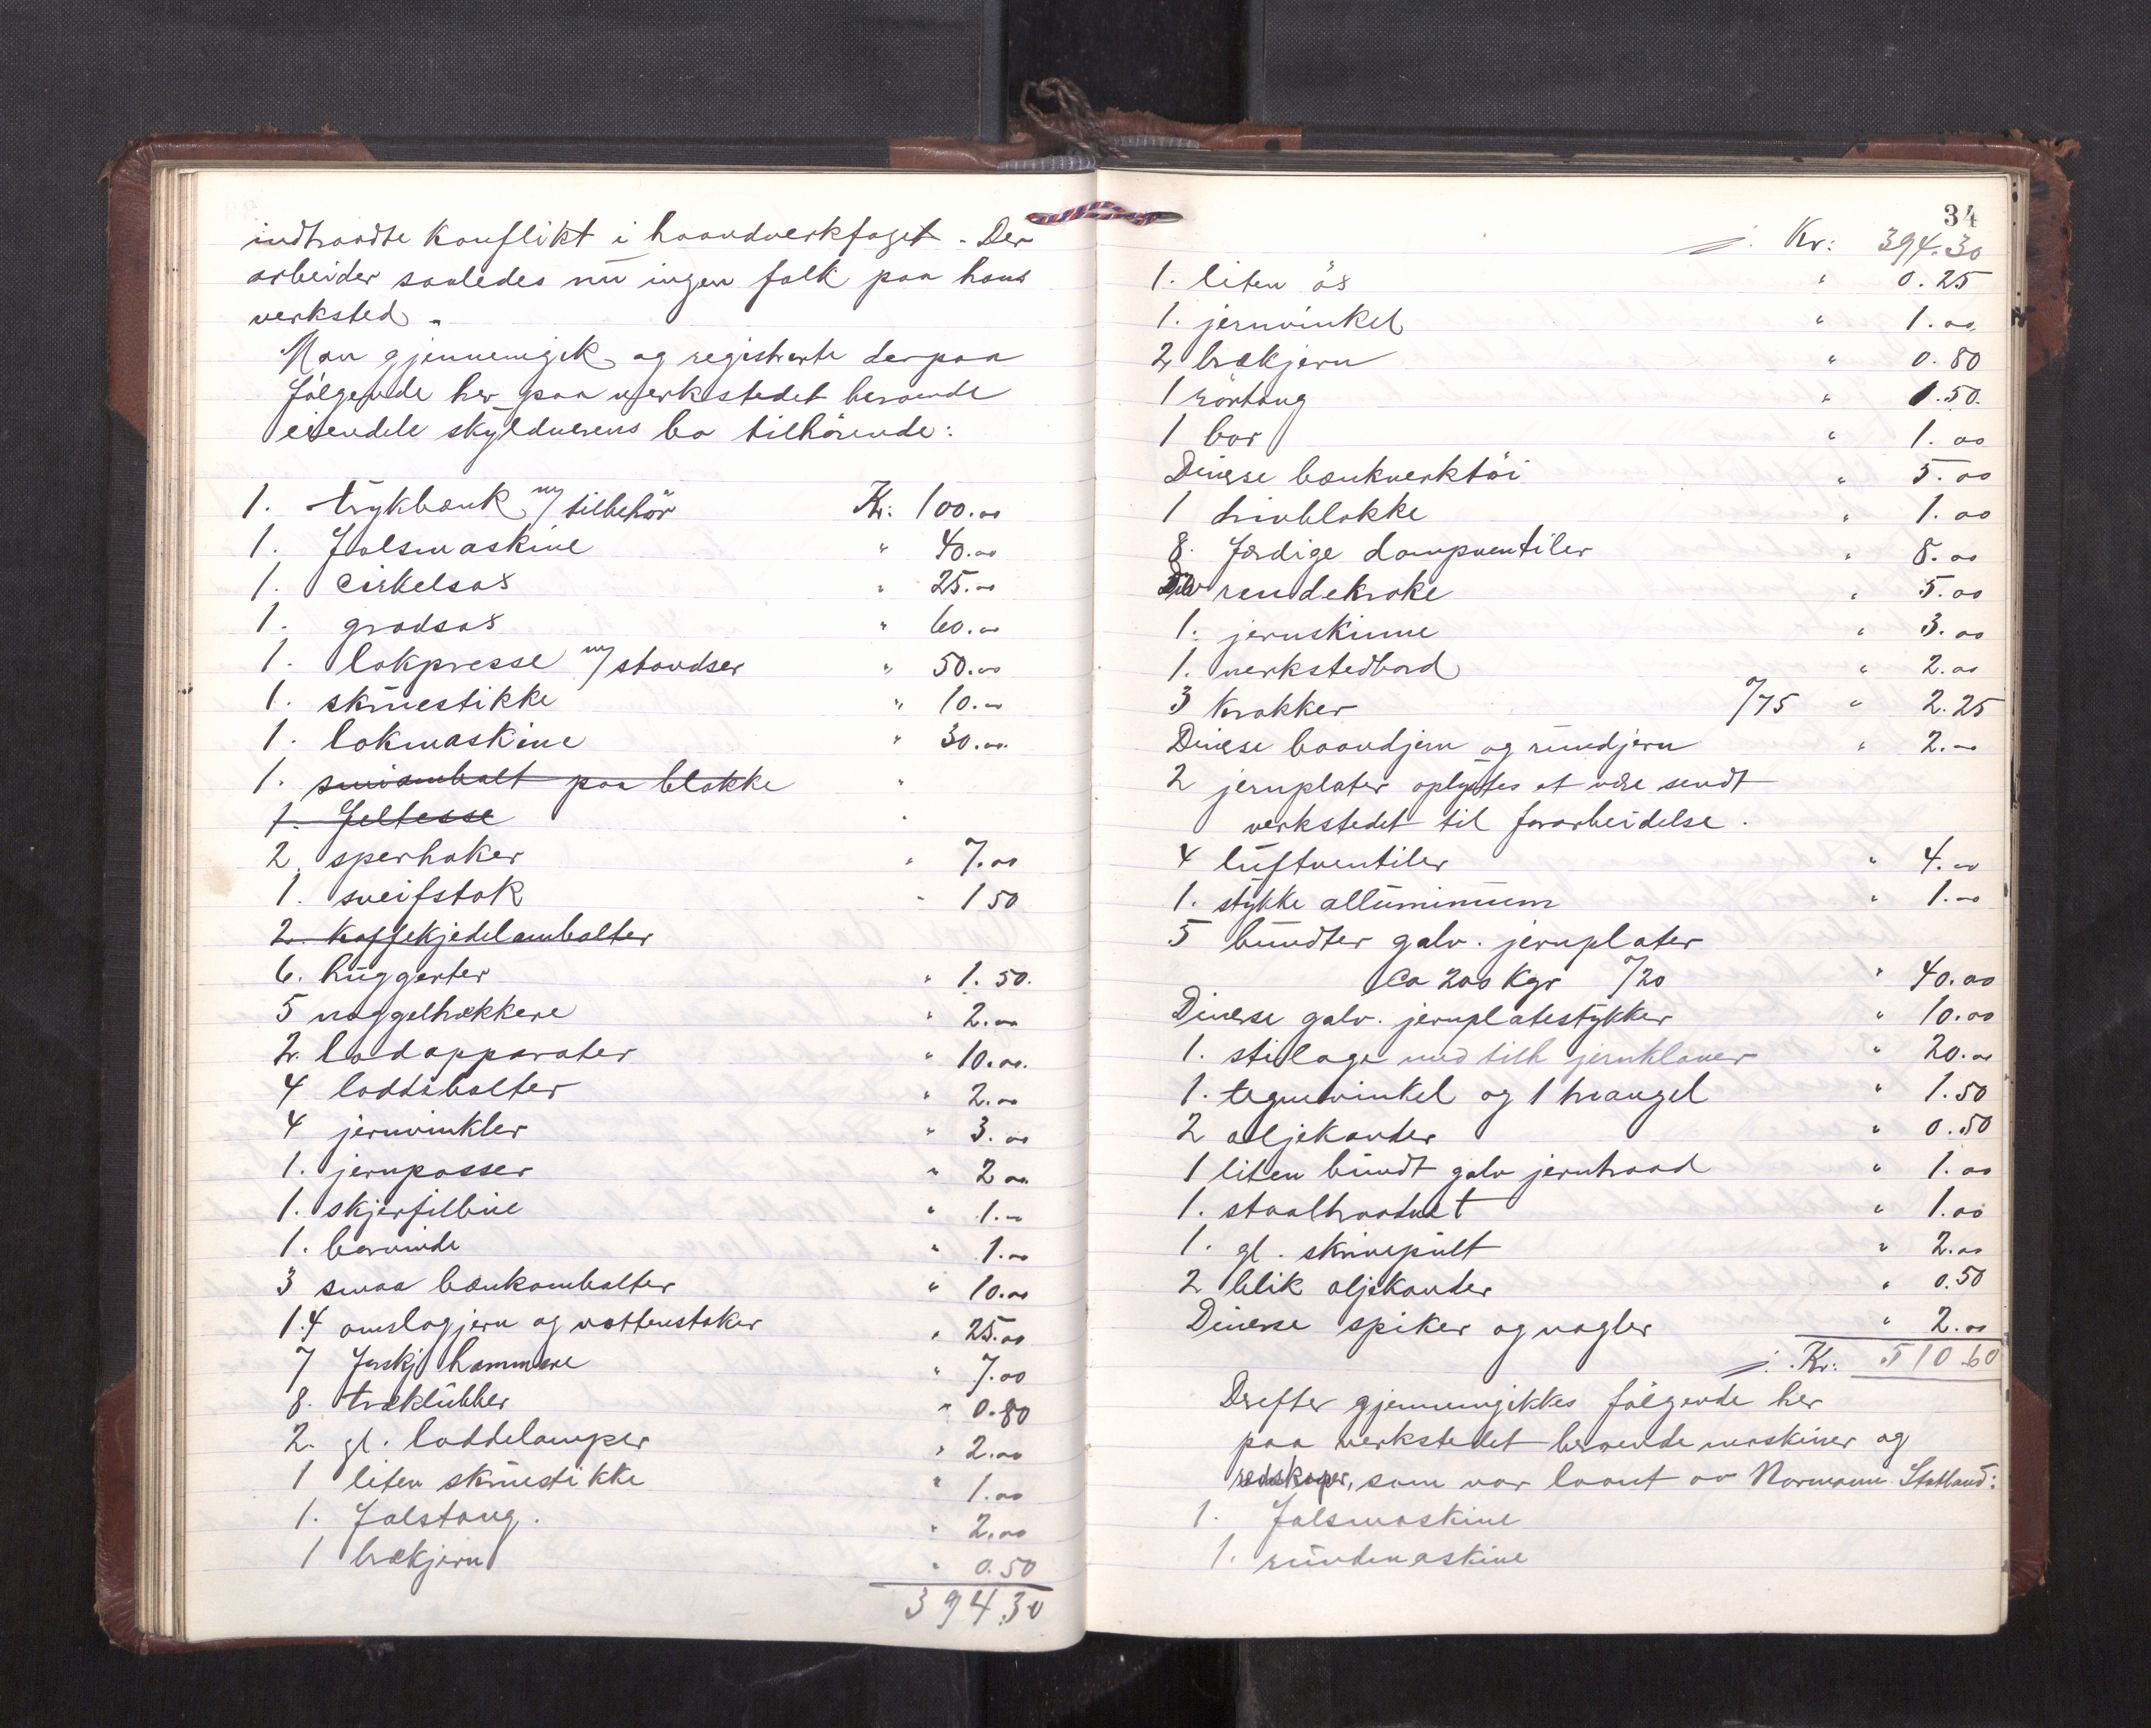 indtraadte konflikt i haandverkfaget. Der
arbeider saaledes nu ingen folk paa hans
verksted.
Man gjennemgik og registrerte derpaa
følgende her paa verkstedet beroende
eiendele skyldnerens bo tilhörende:
1. trykbænk m/ tilbehör Kr: 100.00
1. falsmaskine " 40.00
1. cirkelsas " 25.00
1. gradsas " 60.00
1. lokpresse m/ standser " 50.00
1. skruestikke " 10.00
1. lokmaskine " 30.00
1. smiambolt paa blokke "
1. Feltesse "
2 sperhaker " 7.00
1. sveifstok " 1 50
2. kaffekjedelambolter
6. huggerter " 1.50.
5 naggeltrækkere " 2.00
2. lodapparater " 10.00.
4 loddebolter " 2.00
4 jernvinkler " 3.00
1. jernpasser " 2 00
1. skjærfilbue " 1.00
1. borvinde " 1.00
3 smaa bænkambolter " 10.00
14 omslagjern og vottenstaker " 25.00
7 forskj hammere " 7.00
8. træklubber " 0.80
2. gl. loddelamper " 2.00
1 liten skruestikke " 1.00
1. falstang. " 2.00
1 brækjern " 0.50
394.30
34
j. Kr: 394.30
1. liten ös " 0.25
1. jernvinkel " 1.00
2 brækjern " 0.80
1 rörtang " 1.50.
1 bor " 1.00
Diverse bænkverktöi " 5.00
1 drivblokke " 1.00
8. færdige dampventiler " 8.00
rendekroke " 5.00
1. jernskinne " 3.00
1. verkstedbord " 2.00
3 krakker a/75 " 2.25
Diverse baandjern og rundjern " 2.00
2 jernplater oplystes at være sendt
verkstedet til forarbeidelse.
4 luftventiler " 4.00
1. stykke alluminium " 1.00
5 bundter galv. jernplater
ca 200 Kgr a/20 " 40.00
Diverse galv. jernplatestykker " 10.00
1. stilage med tilh jernklaver " 20.00
1. tegnevinkel og 1 triangel " 1.50
2 oljekander " 0.50
1 liten bundt galv jerntraad " 1.00
1. staaltraadnet " 1.00
1. gl. skrivepult " 2.00
2 blik oljekander " 0.50
Diverse spiker og nagler " 2.00
j. Kr: 510.60
Derefter gjennemgikkes følgende her
paa verkstedet beroende maskiner og
redskaper, som var laant av Normann Statland:
1. Falsmaskine
1. rundmaskine